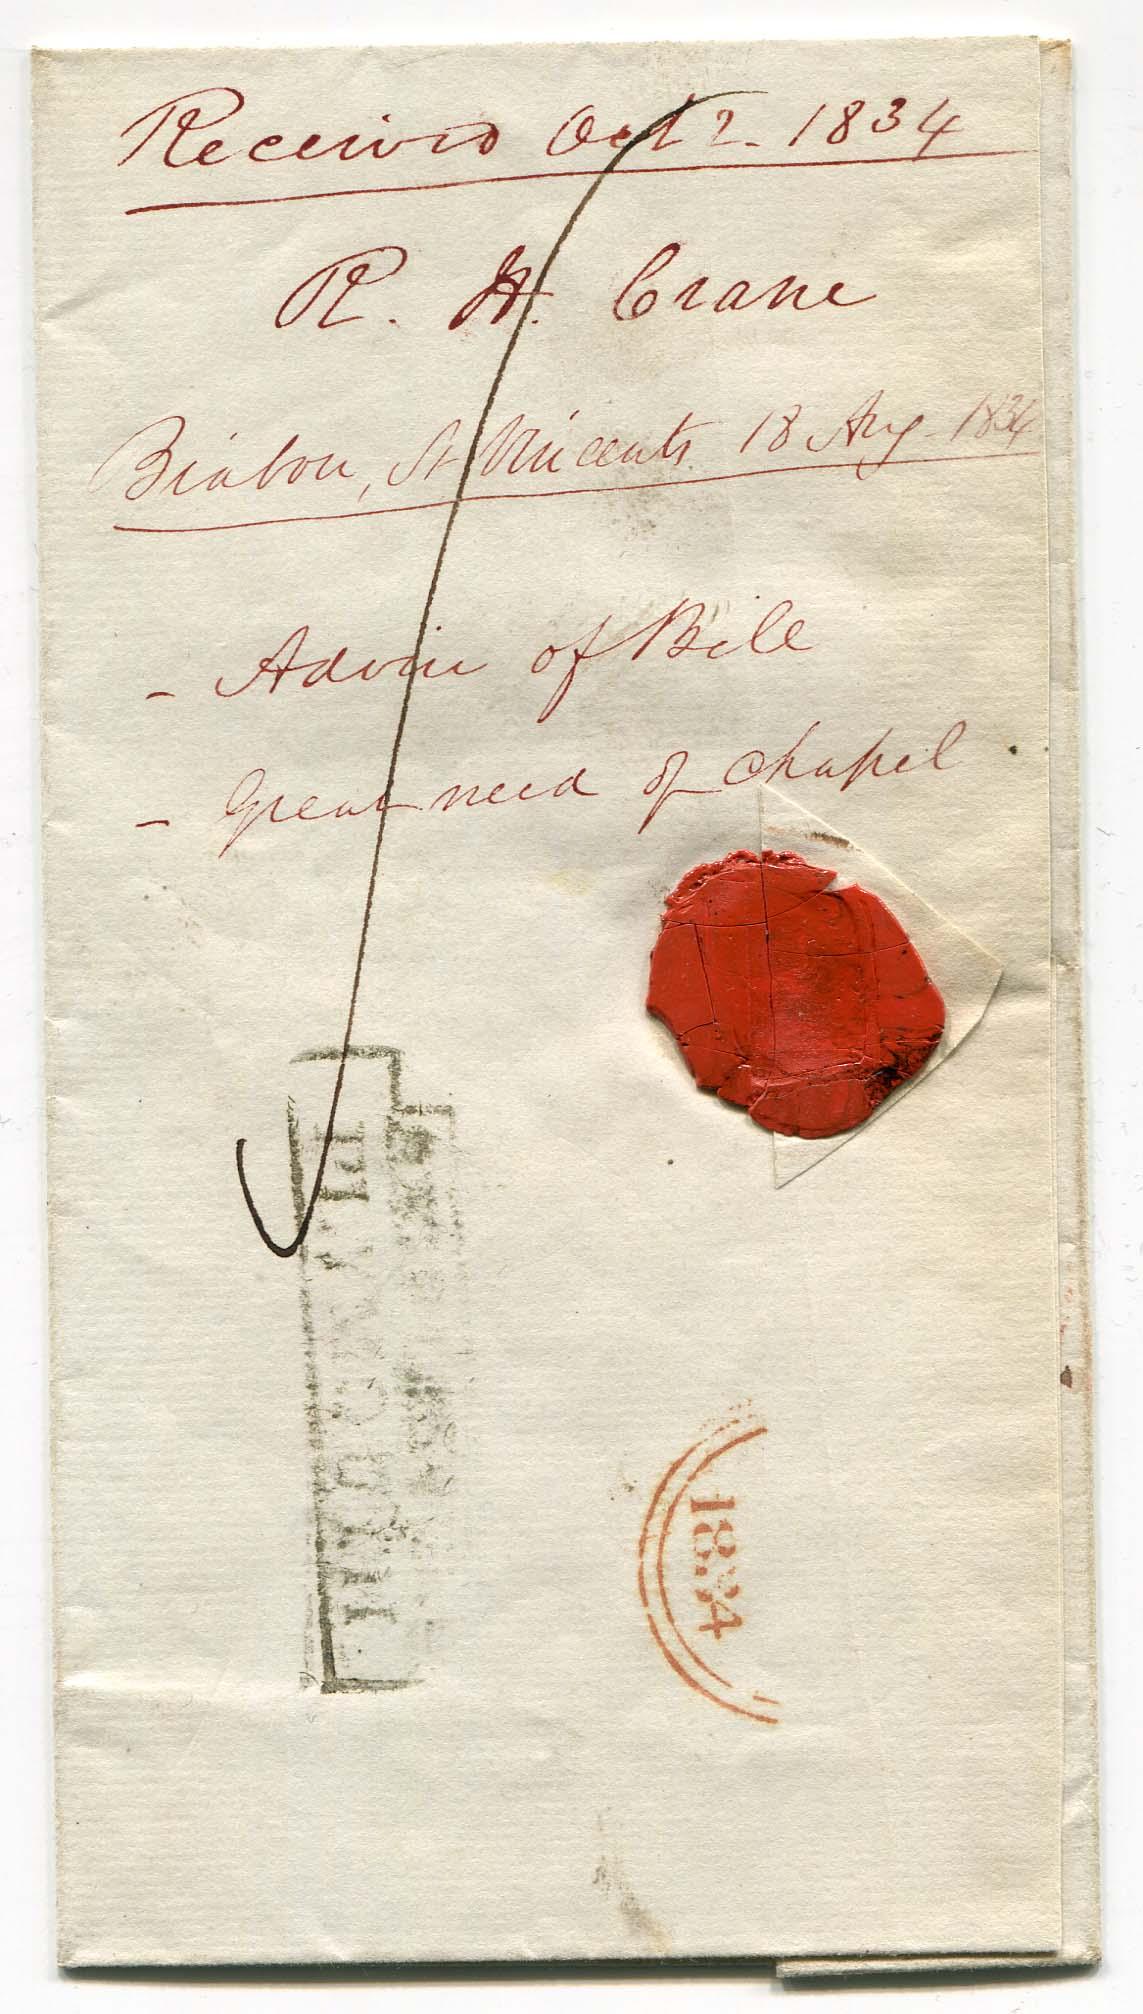 Received Oct 2. 1834
R. H. Crane
Biabou, St Vincents 18 Aug 1834
- Advice of Bill
- Great need of Chapel
1834